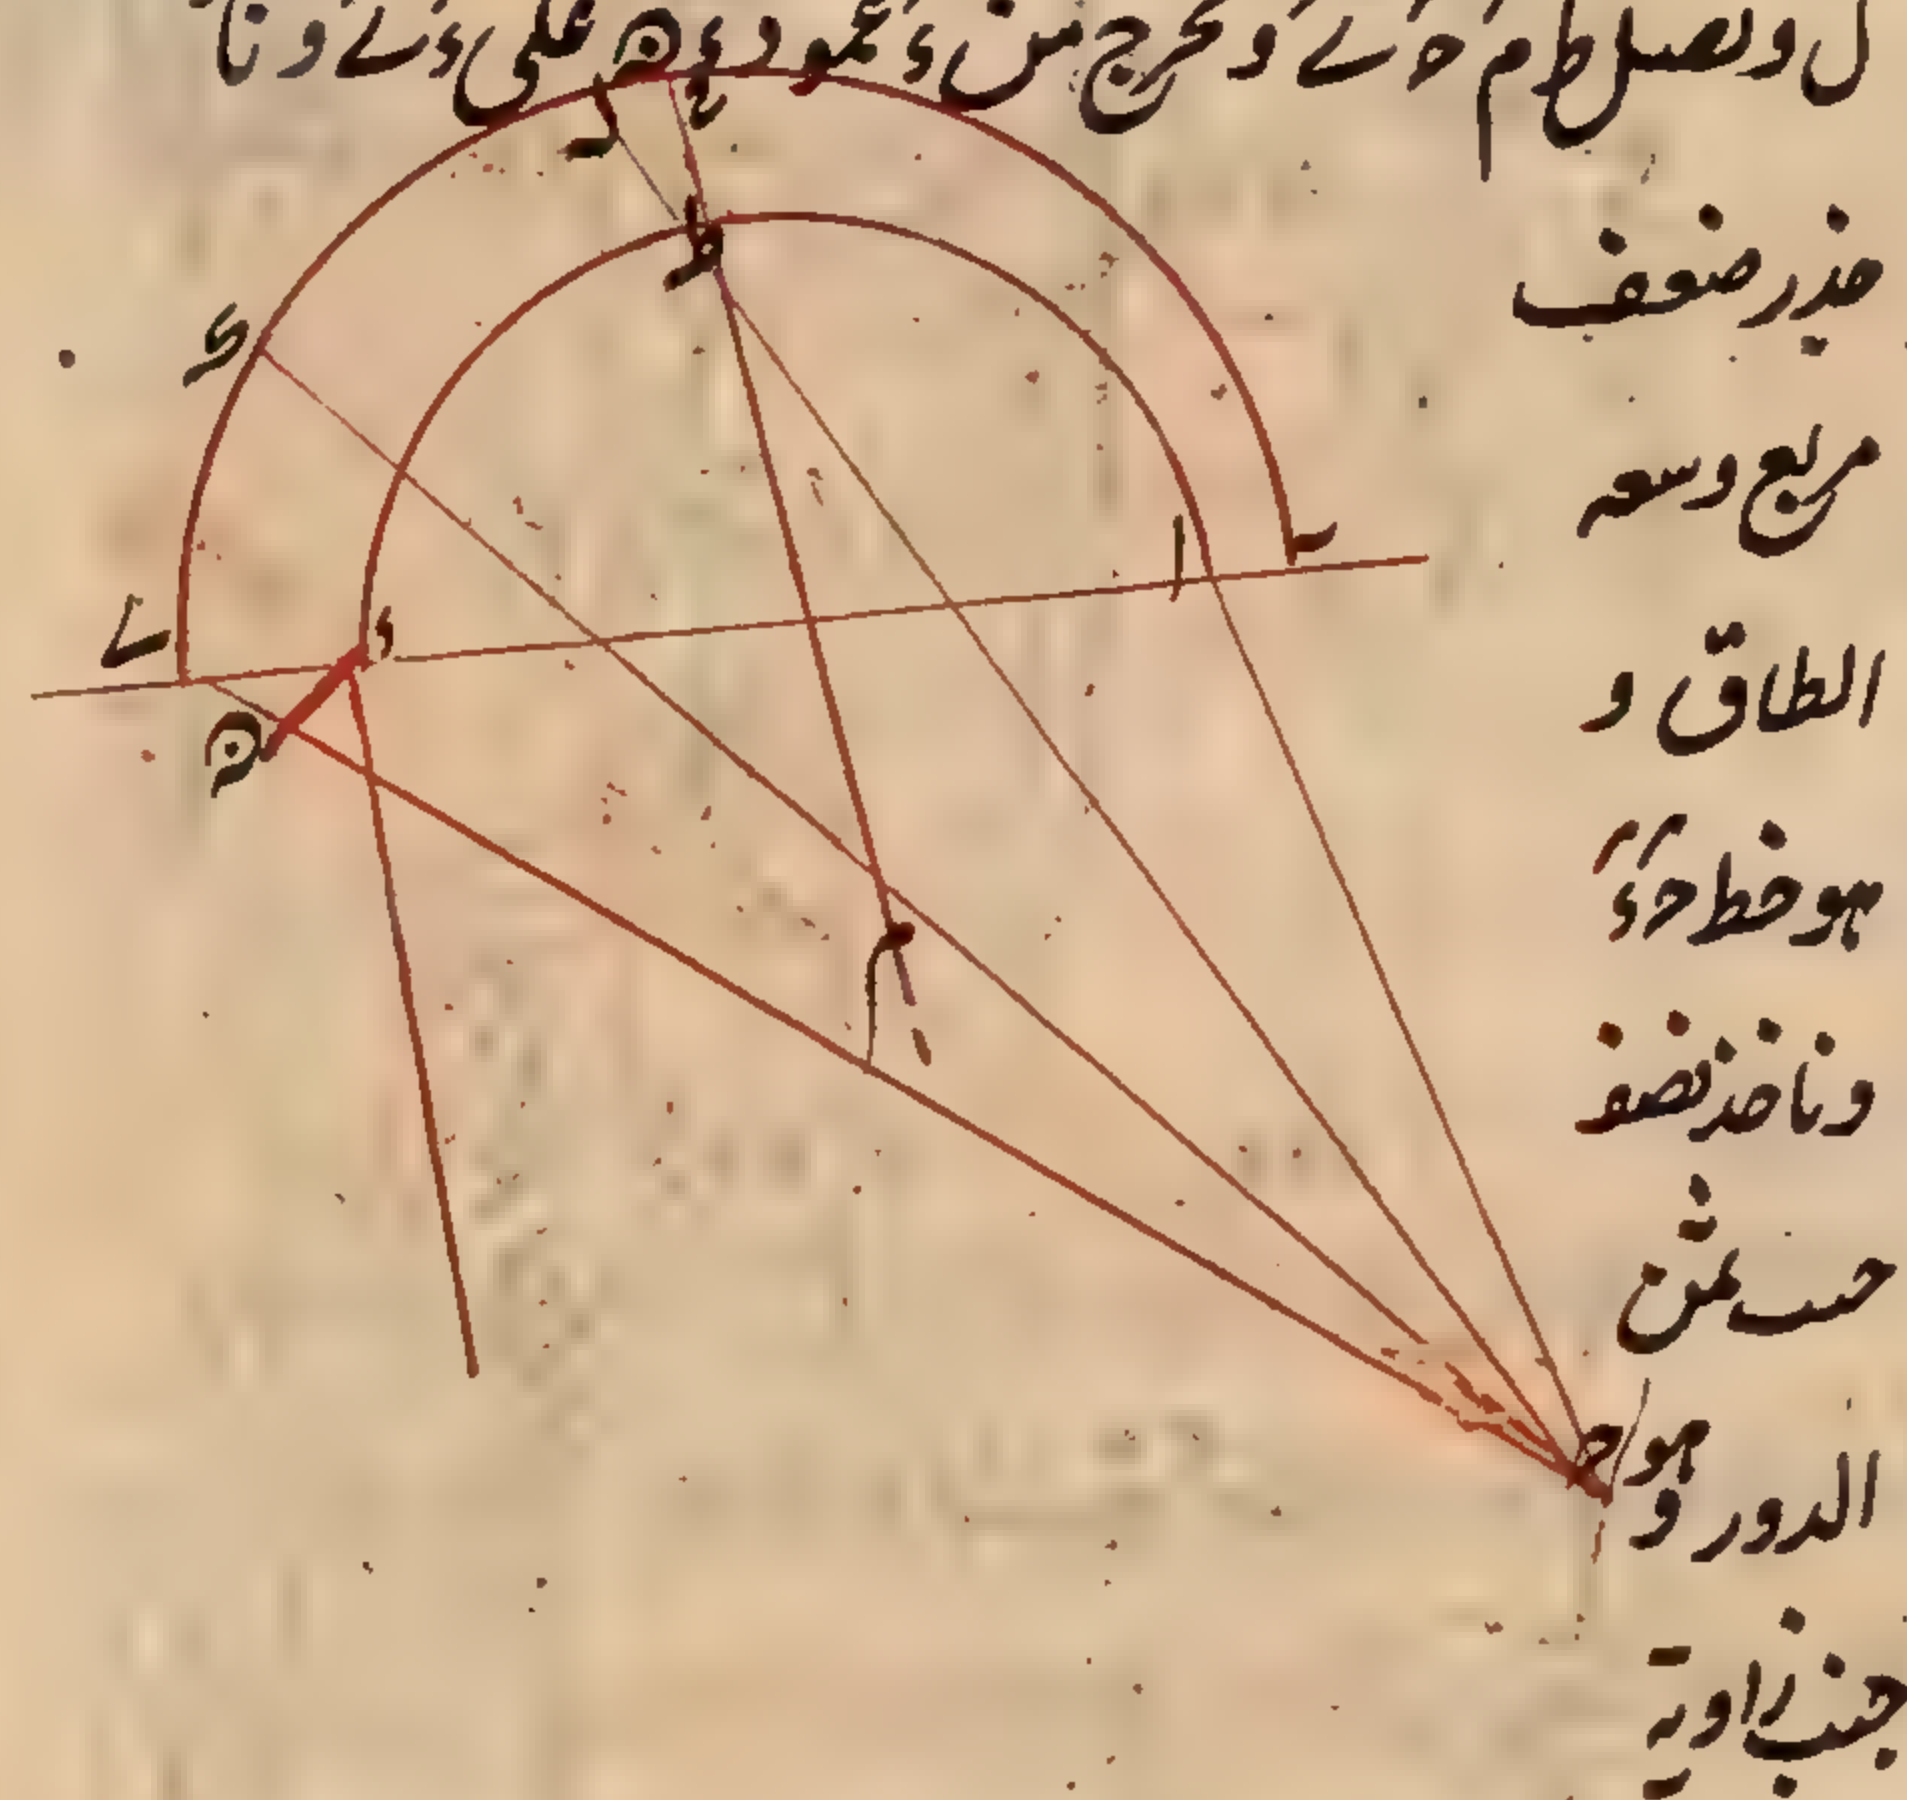 ل ونصل ط م ح ے ونخرج من ء عمود ء ه على ء ے ونا
جذر ضعف
مربع وسعه
الطاق و
هو خط ح ء
وناخذ نصف
حسب ثمن
الدور وهو
جنب زاوية
ط
ا
ے
ه
م
ح